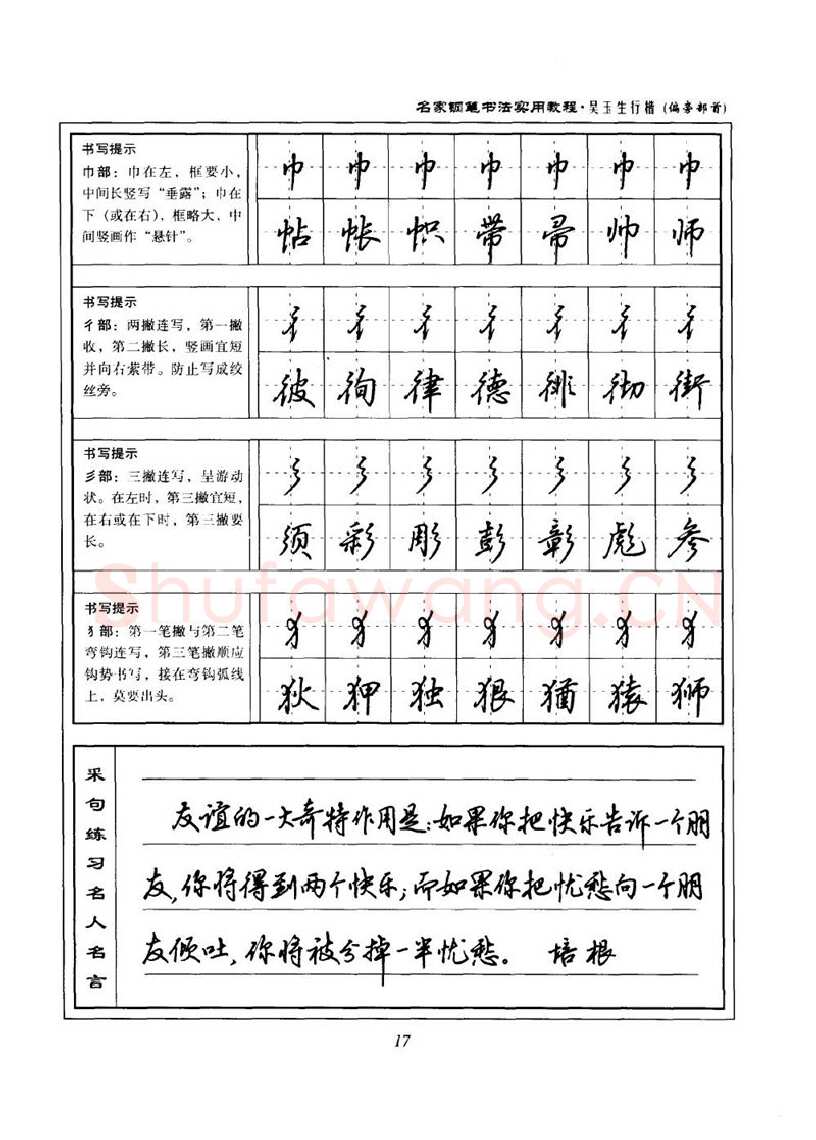 名家钢笔书法实用教程·吴玉生行楷(偏旁部首)
书写提示
巾部：巾在左，框要小，
中间长竖写“垂露”；巾在
下（或在右），框略大，中
间竖画作“悬针”。
巾 巾 巾 巾 巾 巾 巾
帖 帐 帜 带 帚 帅 师
书写提示
彳部：两撇连写，第一撇
收，第二撇长，竖画宜短
并向右萦带。防止写成绞
丝旁。
彳 彳 彳 彳 彳 彳 彳
彼 徇 律 德 徘 彻 街
书写提示
彡部：三撇连写，呈游动
状。在左时，第三撇宜短，
在右或在下时，第三撇要
长。
彡 彡 彡 彡 彡 彡 彡
须 彩 彤 彭 彰 彪 参
Shufawang.CN
书写提示
犭部：第一笔撇与第二笔
弯钩连写，第三笔撇顺应
钩势书写，接在弯钩弧线
上。莫要出头。
犭 犭 犭 犭 犭 犭 犭
狄 狎 独 狠 猶 猿 狮
采句练习名人名言
友谊的一大奇特作用是：如果你把快乐告诉一个朋
友，你将得到两个快乐；而如果你把忧愁向一个朋
友倾吐，你将被分掉一半忧愁。 培根
17